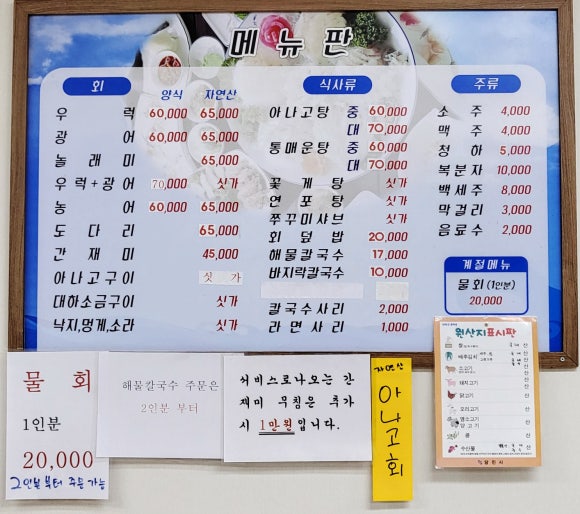 메뉴판
회
양식 자연산
우 럭 60,000 65,000
광 어 60,000 65,000
놀 래 미 65,000
우럭+광어 70,000 싯가
농 어 60,000 65,000
도 다 리 65,000
간 재 미 45,000
아나고구이 싯 가
대하소금구이 싯가
낙지,멍게,소라 싯가
식사류
아나고탕 중 60,000
대 70,000
통매운탕 중 60,000
대 70,000
꽃 게 탕 싯가
연 포 탕 싯가
쭈꾸미샤브 싯가
회 덮 밥 20,000
해물칼국수 17,000
바지락칼국수 10,000
칼국수사리 2,000
라면사리 1,000
주류
소 주 4,000
맥 주 4,000
청 하 5,000
복분자 10,000
백세주 8,000
막걸리 3,000
음료수 2,000
계절메뉴
물 회 (1인분)
20,000
물 회
1인분
20,000
2인분부터 주문 가능
해물칼국수 주문은
2인분 부터
서비스로나오는 간
재미 무침은 추가
시 1만원입니다.
자연산
아나고회
원산지표시판
쌀
배추김치
소고기
돼지고기
닭고기
오리고기
염소고기
양 고 기
콩
수산물
당진시